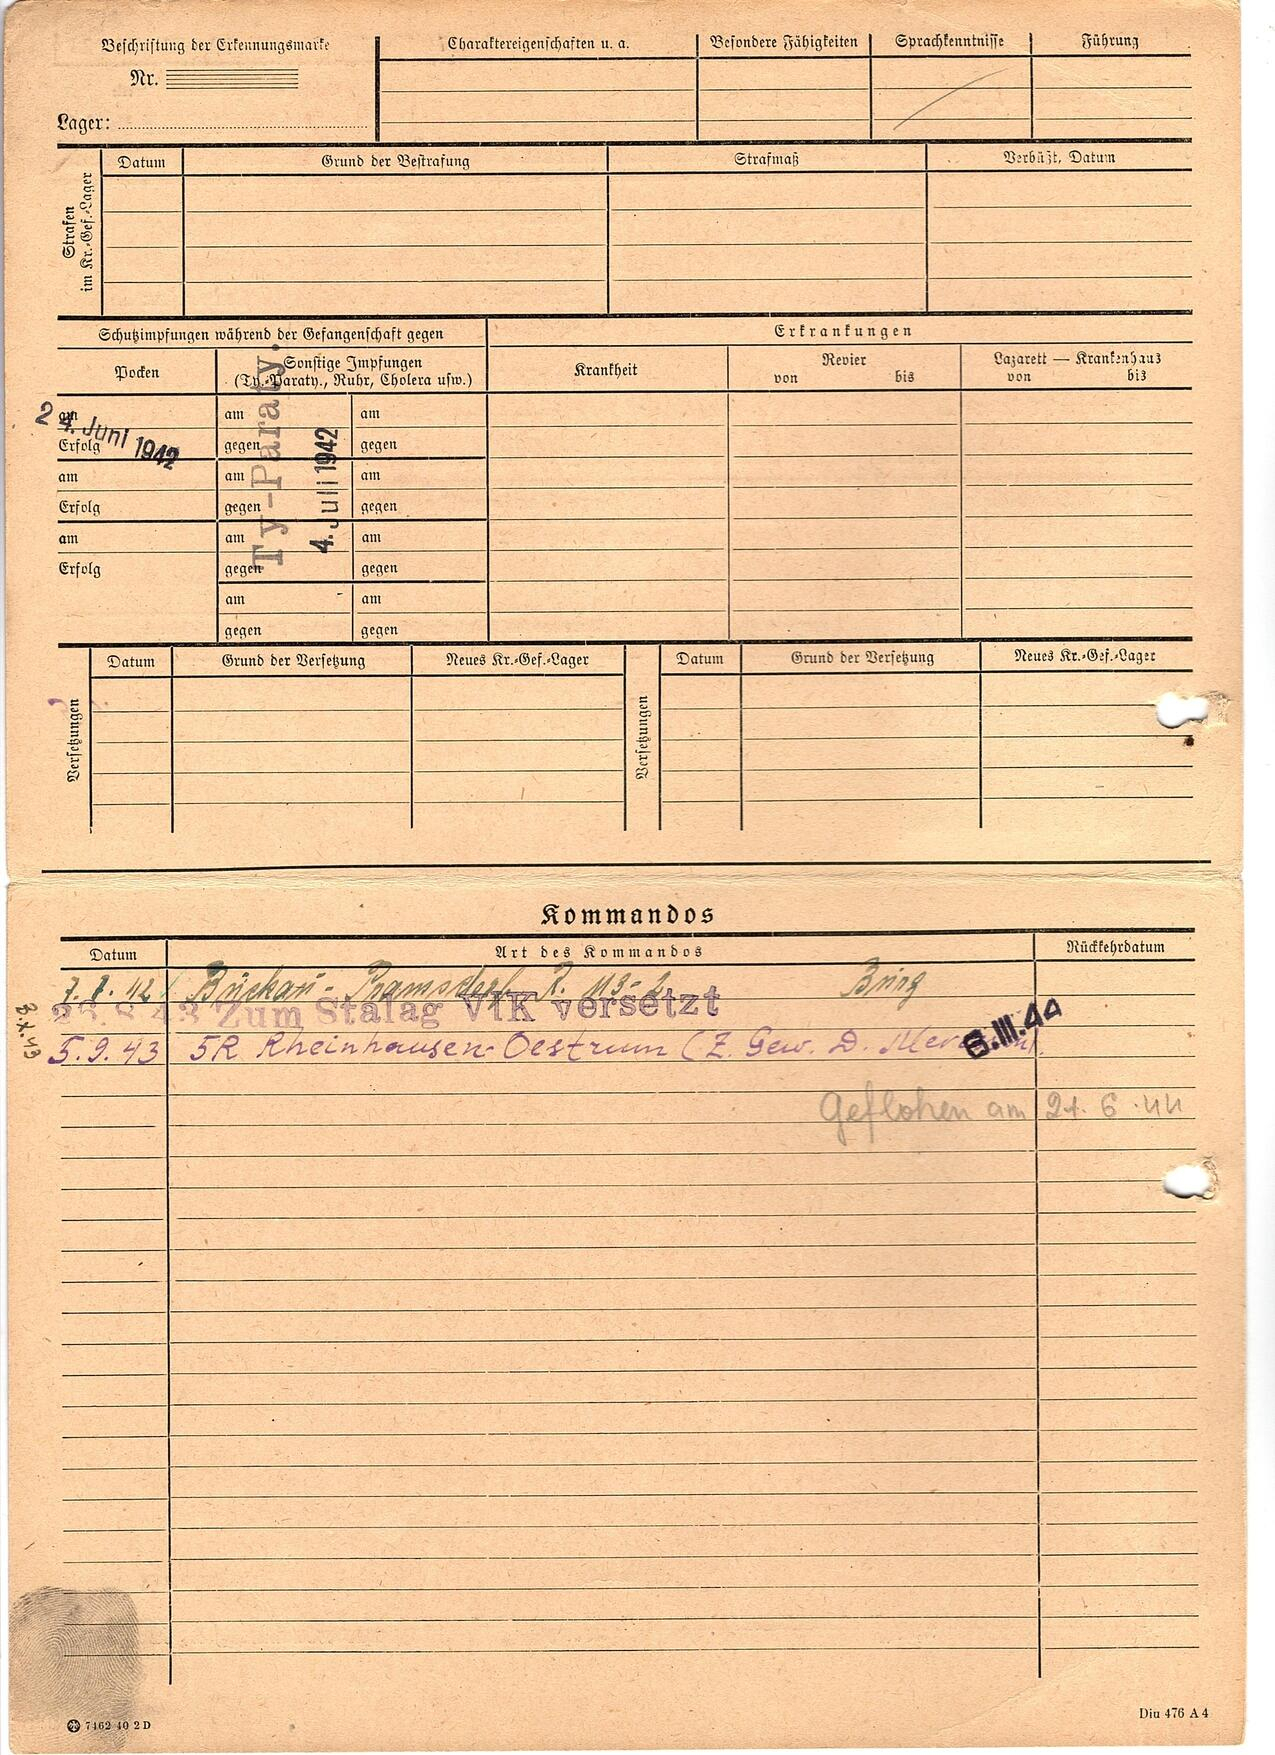 Beschriftung der Erkennungsmarke
Nr.
Lager:
Charaktereigenschaften u. a.
Besondere Fähigkeiten
Sprachkenntnisse
Führung
Strafen im Kr.-Gef.-Lager
Datum
Grund der Bestrafung
Strafmaß
Verbüßt, Datum
Schutzimpfungen während der Gefangenschaft gegen
Erkrankungen
Pocken
Sonstige Impfungen
(Ty.-Paraty., Ruhr, Cholera usw.)
Krankheit
Revier
von bis
Lazarett — Krankenhaus
von bis
am am am
24. Juni 1942
Erfolg gegen gegen
Ty-Paraty.
4. Juli 1942
am am am
Erfolg gegen gegen
am am am
Erfolg gegen gegen
am am
gegen gegen
Versetzungen
Datum
Grund der Versetzung
Neues Kr.-Gef.-Lager
Versetzungen
Datum
Grund der Versetzung
Neues Kr.-Gef.-Lager
Kommandos
Datum
Art des Kommandos
Rückkehrdatum
42 Burg
43 Zum Stalag VI K versetzt
5.9.43 5R Rheinhausen-Oestrum (Z. Gew. D.
8.III.44
Geflohen am 21.6.44
7462 40 2 D
Din 476 A 4